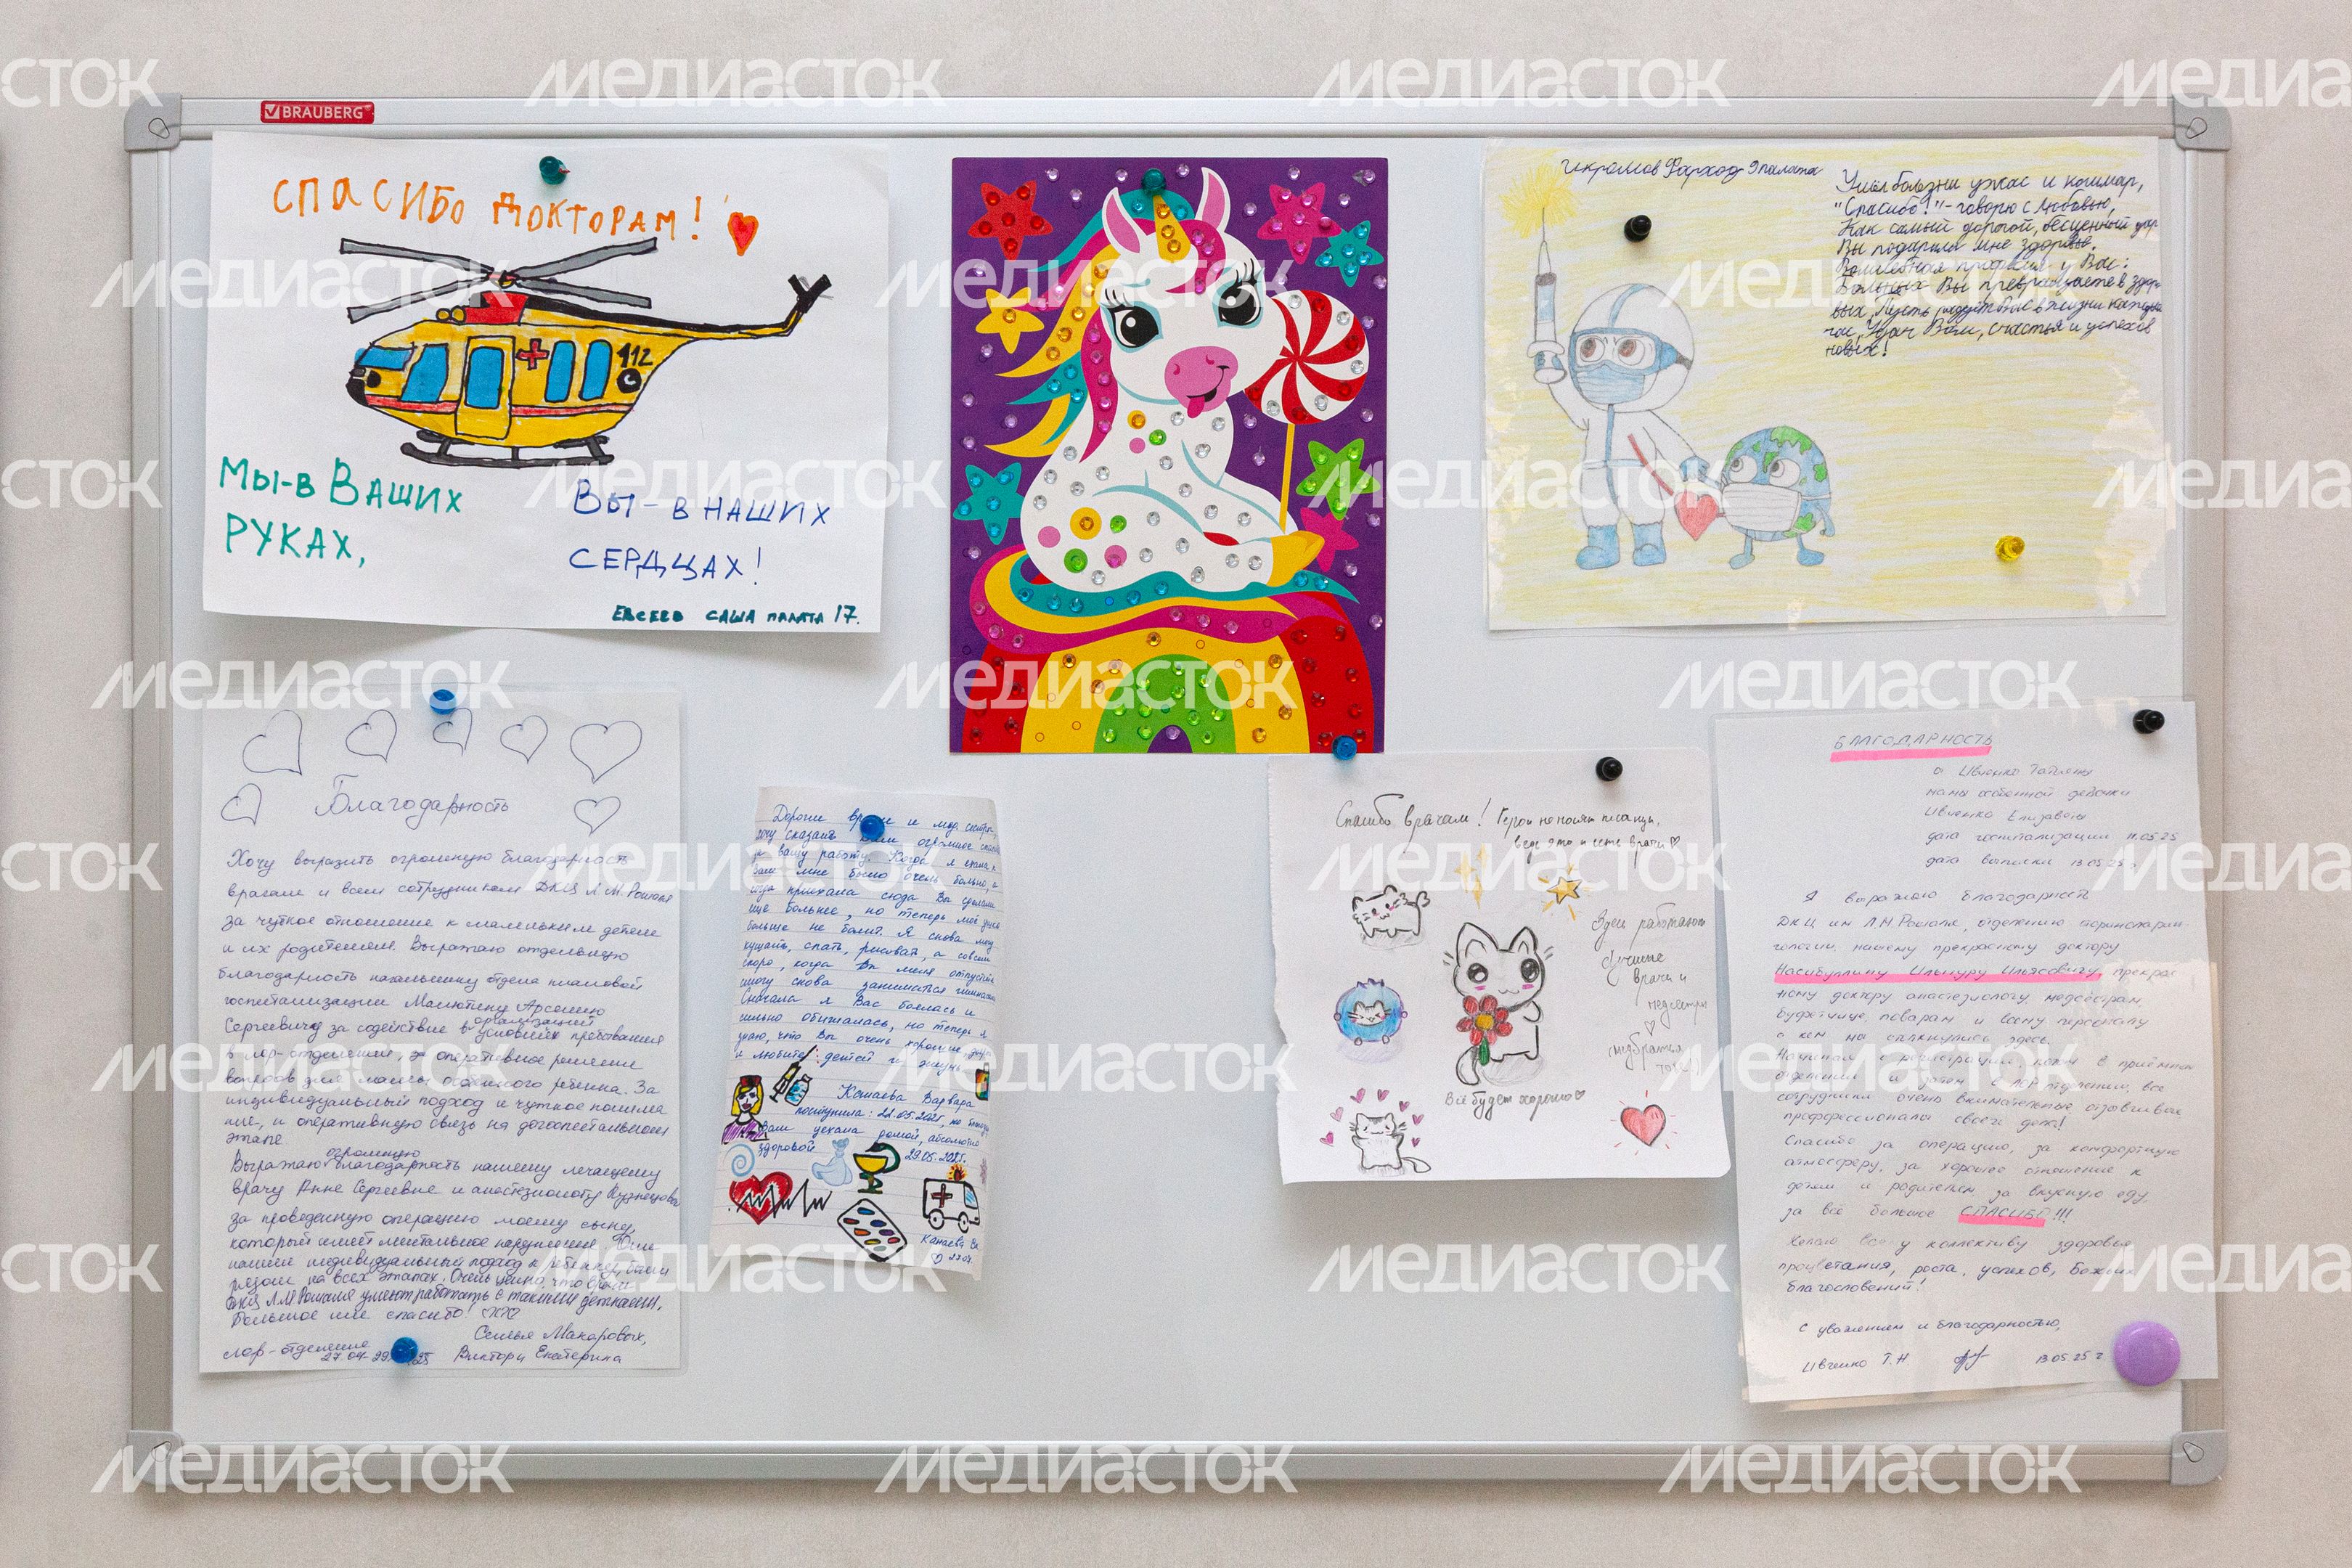 BRAUBERG
СПАСИБО ДОКТОРАМ!
112
МЫ-В ВАШИХ
РУКАХ,
ВЫ-В НАШИХ
СЕРДЦАХ!
ЕВСЕЕВ САША ПАЛАТА 17.
Икромов Фарход 9 палата
Ушёл болезни ужас и кошмар,
"Спасибо!"-говорю с любовью,
Как самый дорогой, бесценный дар
Вы подарили мне здоровье.
Волшебная профессия у Вас:
Больных Вы превращаете в здоро
вых, Пусть радует Вас в жизни каждый
час, Удач Вам, счастья и успехов
новых!
Благодарность
Хочу выразить огромную благодарность
врачам и всем сотрудникам ДКЦ Л.М. Рошаля
за чуткое отношение к маленьким детям
и их родителям. Выражаю отдельную
благодарность начальнику отдела плановой
госпитализации Малютину Арсению
Сергеевичу за содействие в организации
условиях пребывания
в лор-отделении, за оперативное решение
вопросов для моего особенного ребёнка. За
индивидуальный подход и чуткое понима
ние, и оперативную связь на догоспитальном
этапе
Выражаю огромную благодарность нашему лечащему
врачу Анне Сергеевне и анестезиологу Кузнецову
за проведенную операцию моему сыну,
который имеет ментальное нарушение. Они
нашли индивидуальный подход к ребенку, были
рядом на всех этапах. Очень ценно, что врачи
ДКЦ Л.М Рошаля умеют работать с такими детками.
Большое им спасибо!
Семья Макаровых,
лор-отделение
27.04 29. 25 Виктор и Екатерина
Дорогие врачи и мед. сестры,
хочу сказать Вам огромное спасибо
за вашу работу. Когда я ехала к
Вам мне было очень больно, а
когда приехала сюда Вы сделали
ещё больнее, но теперь моё
больше не болит. Я снова могу
кушать, спать, рисовать, а совсем
скоро, когда Вы меня отпустите
смогу снова заниматься гимнастикой
Сначала я Вас боялась и
сильно обижалась, но теперь я
знаю, что Вы очень хорошие
и любите детей и жизнь
Канаева Варвара
поступила: 21.05.2025,
Вами уехала домой, абсолютно
здоровой 29.05.2025.
Канаева
Спасибо врачам! Герои не носят плащи,
ведь это и есть врачи
Здесь работают
лучшие
врачи и
медсестры
медбратья
тоже
Всё будет хорошо
БЛАГОДАРНОСТЬ
от Ивченко Татьяны
мамы особенной девочки
Ивченко Елизаветы
дата госпитализации 11.05.25
дата выписки 13.05.25 г
Я выражаю благодарность
ДКЦ им Л.М Рошаля, отделению оториноларин
гологии, нашему прекрасному доктору
Насибуллину Ильнуру Ильясовичу, прекрас
ному доктору анастезиологу, медсёстрам,
буфетчице, поварам и всему персоналу
с кем мы столкнулись здесь.
Начиная с регистрации, потом в приёмном
отделении и затем в ЛОР отделении, все
сотрудники очень внимательные, отзывчивые
профессионалы своего дела!
Спасибо за операцию, за комфортную
атмосферу, за хорошее отношение к
детям и родителям, за вкусную еду,
за всё большое СПАСИБО!!!
Желаю всему коллективу здоровья
процветания, роста, успехов, Божьих
благословений!
С уважением и благодарностью,
Ивченко Т.Н 13.05.25 г.
МЕДИАСТОК